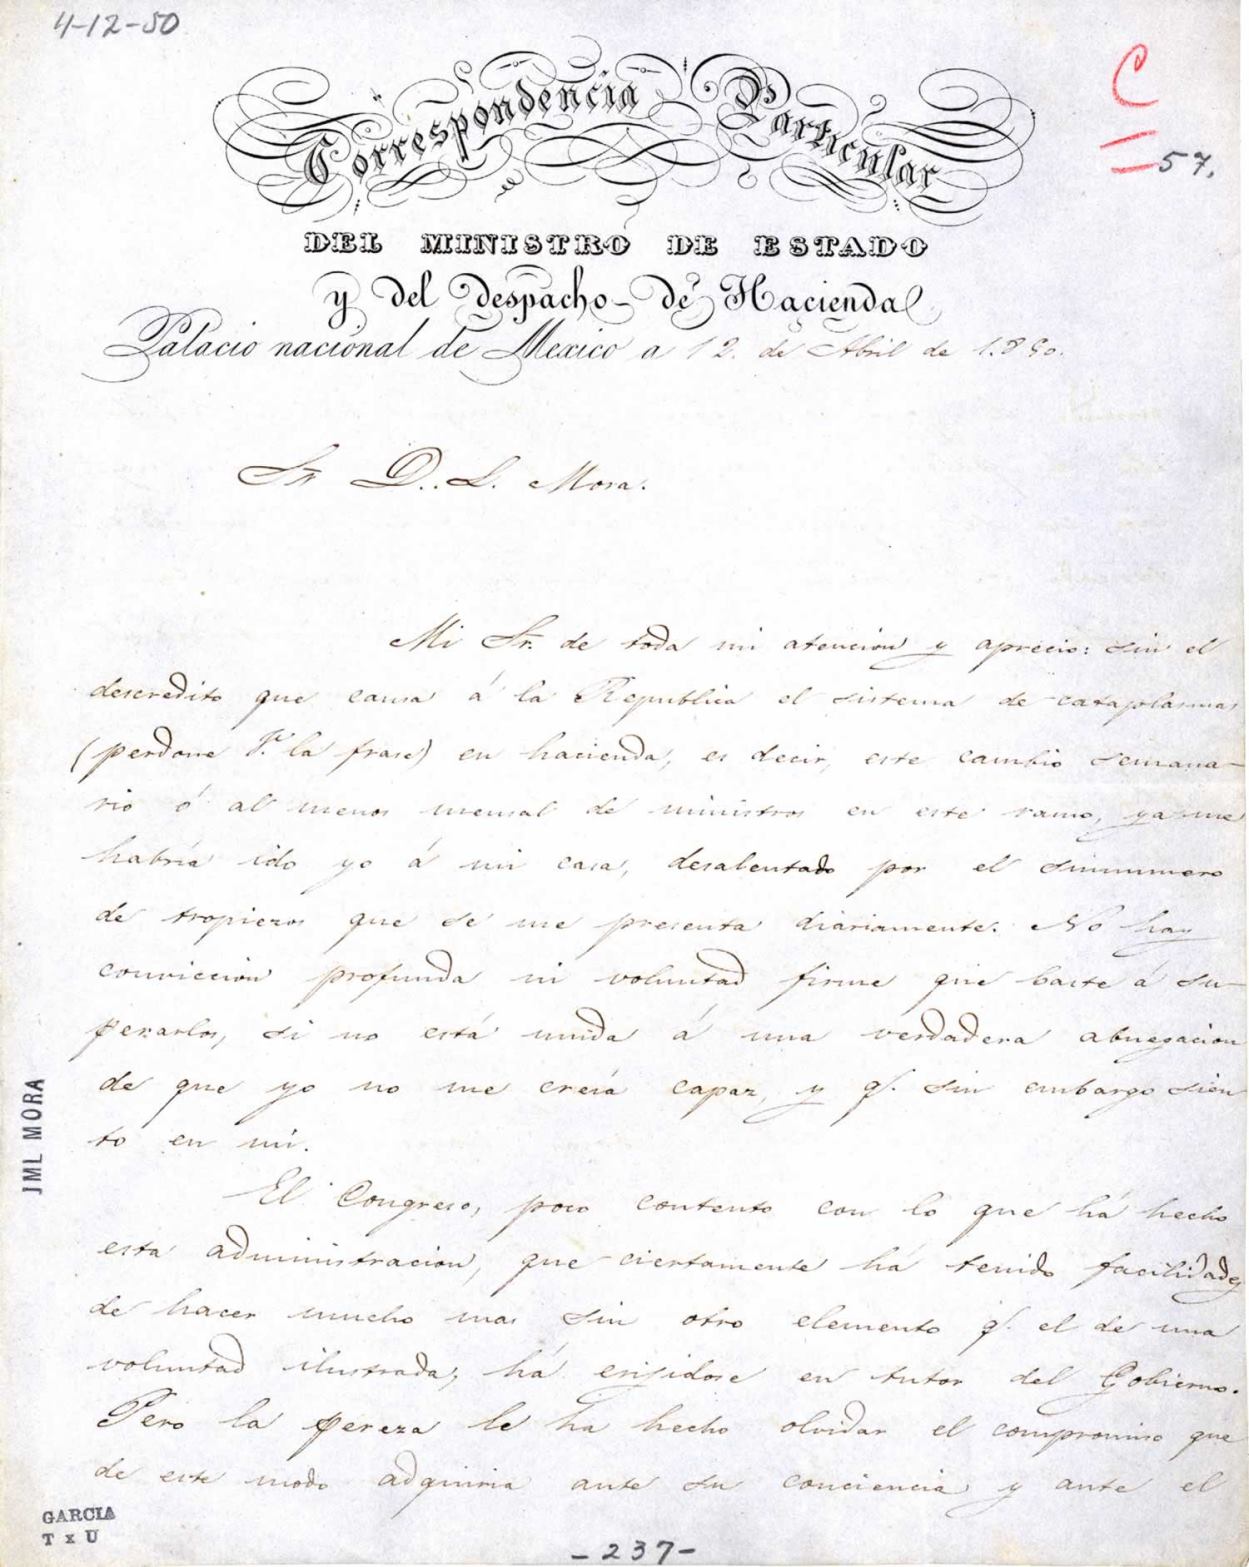 4-12-50
C
57.
Correspondencia Particular
DEL MINISTRO DE ESTADO
y del Despacho de Hacienda
Palacio nacional de Mexico a 12. de Abril de 1.850.
Sr. D. L. Mora.
Mi Sr. de toda mi atencion y aprecio: sin el
descredito que causa á la Republica el sistema de cataplasmas
(perdone V. la frase) en hacienda, es decir, este cambio semana-
rio ó al menos mensal de ministros en este ramo, ya me
habria ido yo á mi casa, desalentado por el sinnumero
de tropiezos que se me presenta diariamente. No hay
conviccion profunda ni voluntad firme que baste á su-
perarlos, si no está unida á una verdadera abnegacion
de que yo no me creía capaz, y q. sin embargo sien
to en mi.
El Congreso, poco contento con lo que há hecho
esta administracion, que ciertamente há tenido facilidades
de hacer mucho mas sin otro elemento q. el de una
voluntad ilustrada, há erijidose en tutor del Gobierno.
Pero la pereza le ha hecho olvidar el compromiso que
de este modo adquiria ante su conciencia y ante el
JML MORA
GARCIA
T x U
-237-